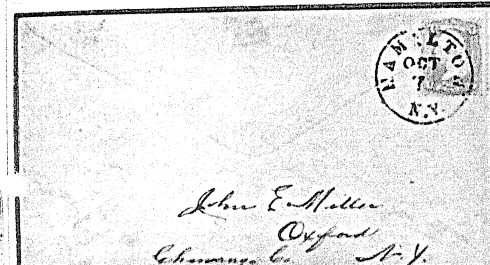 HAMILTON
OCT
7
N.Y.
John E. Miller
Oxford
Chenango Co N.Y.